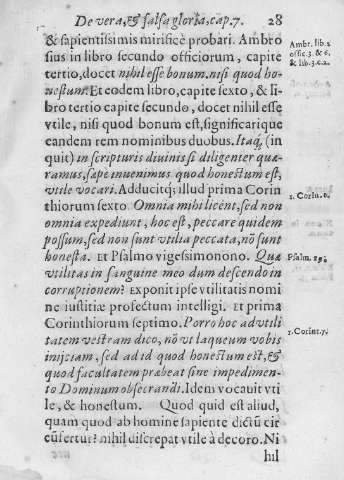 De vera, & falsa gloria, cap. 7. 28
& sapientissimis mirificè probari. Ambro
sius in libro secundo officiorum, capite
tertio, docet nihil esse bonum, nisi quod ho-
nestum. Et eodem libro, capite sexto, & li-
bro tertio capite secundo, docet nihil esse
vtile, nisi quod bonum est, significarique
eandem rem nominibus duobus. Itaq; (in
quit) in scripturis diuinis si diligenter quæ-
ramus, sæpe inuenimus quod honestum est,
vtile vocari. Adducitq; illud prima Corin
thiorum sexto. Omnia mihi licent, sed non
omnia expediunt, hoc est, peccare quidem
possum, sed non sunt vtilia peccata, nō sunt
honesta. Et Psalmo vigesimonono. Quæ
vtilitas in sanguine meo dum descendo in
corruptionem? Exponit ipse vtilitatis nomi
ne iustitiæ profectum intelligi. Et prima
Corinthiorum septimo. Porro hoc ad vtili
tatem vestram dico, nō vt laqueum vobis
inijciam, sed ad id quod honestum est, &
quod facultatem præbeat sine impedimen-
to Dominum obsecrandi. Idem vocauit vti
le, & honestum. Quod quid est aliud,
quam quod ab homine sapiente dictū cir
cūfertur? nihil discrepat vtile à decoro. Ni
hil
Ambr. lib. 2
offic. 3. & 6.
& lib. 3. c. 2.
1. Corin. 6.
Psalm. 29.
1. Corint. 7.